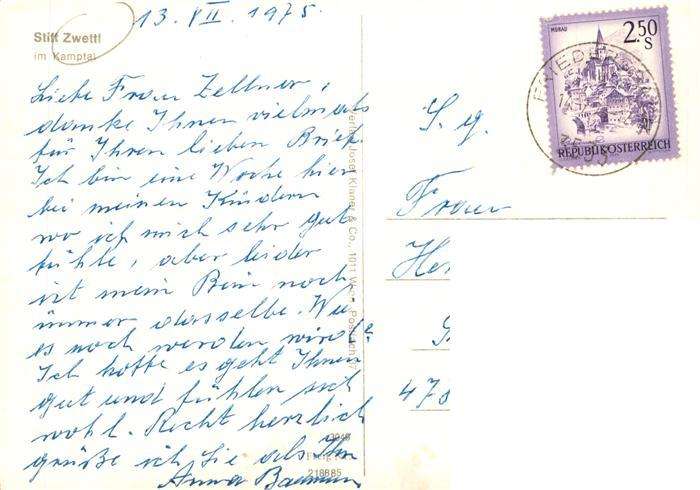 13. VII. 1975.
Stift Zwettl
im Kamptal
Liebe Frau Zellner,
danke Ihnen vielmals
für Ihren lieben Brief.
Ich bin eine Woche hier
bei meinen Kindern
wo ich mich sehr gut
fühle, aber leider
ist mein Bein noch
immer dasselbe. Wie
es noch werden wird?
Ich hoffe es geht Ihnen
gut und fühlen sich
wohl. Recht herzlich
grüße ich Sie als Ihre
Anna
Verlag Josef Klaner & Co., 1011 Wien, Postfach
218885
MURAU
2.50
S
REPUBLIK ÖSTERREICH
S. g.
Frau